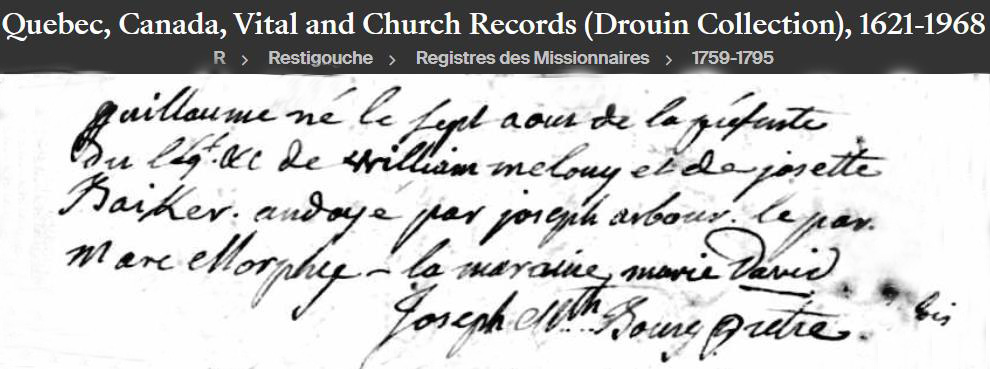 Quebec, Canada, Vital and Church Records (Drouin Collection), 1621-1968
R > Restigouche > Registres des Missionnaires > 1759-1795
guillaume né le sept aous de la présente
du légt. &c de william melouy et de josette
Baiker. andoyé par joseph arbour. le par.
Marc Morphy – la maraine, marie David
Joseph Mth. Bourg Prêtre.
bis